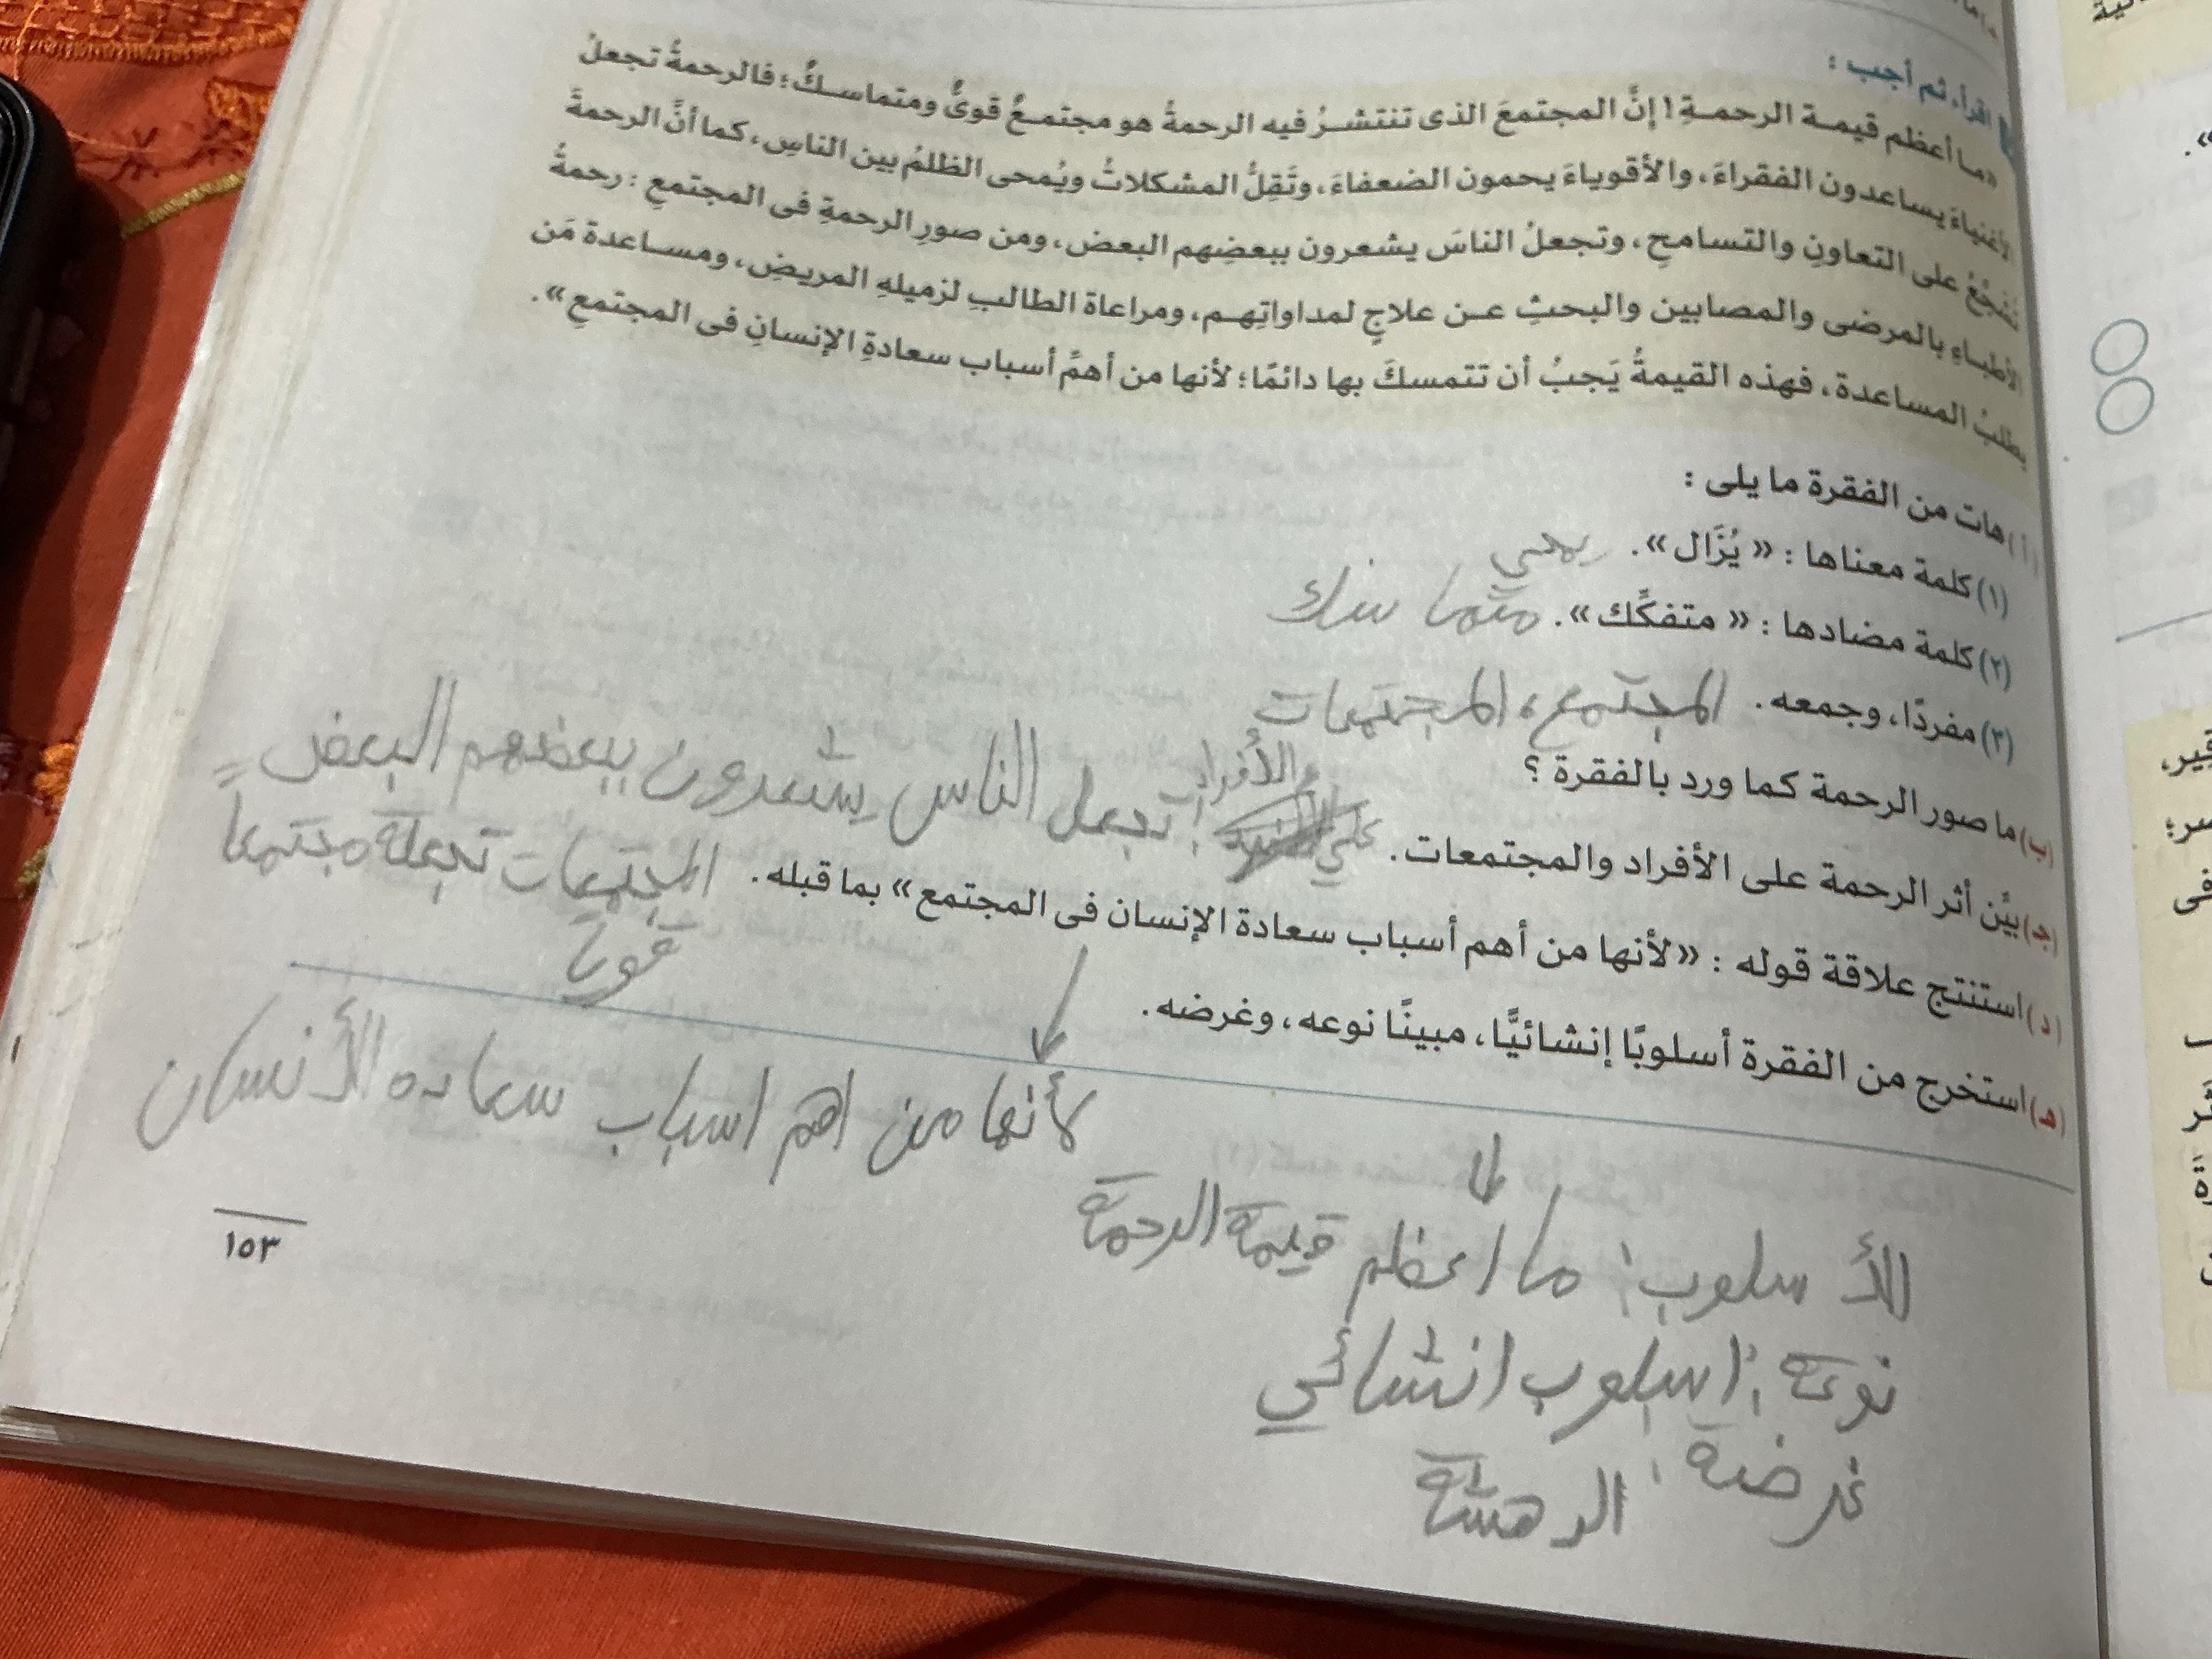 اقرأ، ثم أجب :
«مـا أعظم قيمـة الرحمـةِ! إنَّ المجتمعَ الذى تنتشـرُ فيه الرحمةُ هو مجتمـعٌ قوىٌّ ومتماسـكٌ؛ فالرحمةُ تجعلُ
الأغنياءَ يساعدون الفقراءَ، والأقوياءَ يحمون الضعفاءَ، وتَقِلُّ المشكلاتُ ويُمحى الظلمُ بين الناسِ، كما أنَّ الرحمةَ
تُشَجِّعُ على التعاونِ والتسامحِ، وتجعلُ الناسَ يشعرون ببعضِهم البعض، ومن صورِ الرحمةِ فى المجتمعِ : رحمةُ
الأطباءِ بالمرضى والمصابين والبحثِ عـن علاجٍ لمداواتِهـم، ومراعاة الطالبِ لزميلهِ المريضِ، ومسـاعدة مَن
يطلبُ المساعدة، فهذه القيمةُ يَجبُ أن تتمسكَ بها دائمًا؛ لأنها من أهمِّ أسباب سعادةِ الإنسانِ فى المجتمعِ».
(أ) هات من الفقرة ما يلى :
(١) كلمة معناها : « يُزَال ». يمحي
(٢) كلمة مضادها : « متفكِّك ». متما سك
(٣) مفردًا، وجمعه. المجتمع، المجتمعات
(ب) ما صور الرحمة كما ورد بالفقرة ؟
(جـ) بيِّن أثر الرحمة على الأفراد والمجتمعات. علي الأفراد: تجعل الناس يشعرون ببعضهم البعض
(د) استنتج علاقة قوله : «لأنها من أهم أسباب سعادة الإنسان فى المجتمع» بما قبله. المجتمعات تجعلة مجتمعا
قويا
(هـ) استخرج من الفقرة أسلوبًا إنشائيًّا، مبينًا نوعه، وغرضه.
لأنها من اهم اسباب سعاده الأنسان
الأسلوب: ما اعظم قيمة الرحمة
نوعة: اسلوب انشائي
غرضة: الدهشة
١٥٣